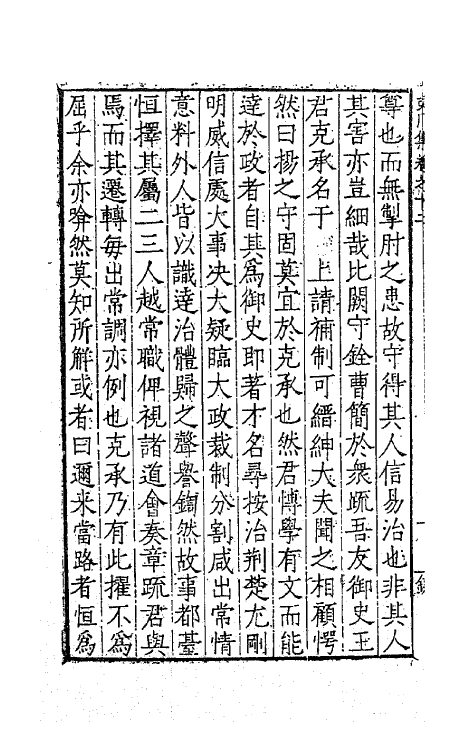 尊也而無掣肘之患故守得其人信易治也非其人
其害亦豈細哉比闕守銓曹簡於衆疏吾友御史王
君克承名于　上請補制可縉紳大夫聞之相顧愕
然曰揚之守固莫宜於克承也然君博學有文而能
達於政者自其爲御史即著才名尋按治荆楚尤剛
明威信處大事决大疑臨大政裁制分割咸出常情
意料外人皆以識達治體歸之聲譽鍧然故事都臺
恒擇其屬二三人越常職俾視諸道會奏章疏君與
焉而其遷轉每出常調亦例也克承乃有此擢不爲
屈乎余亦喑然莫知所觧或者曰邇来當路者恒爲